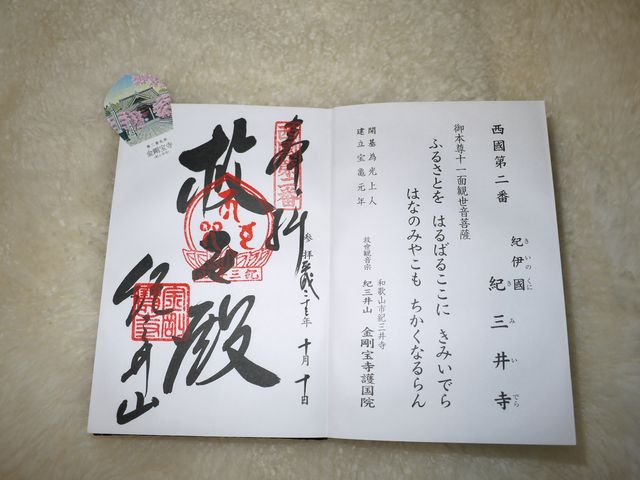 西國第二番
紀伊國 紀三井寺
きいのくに きみいでら
御本尊十一面観世音菩薩
ふるさとを はるばるここに きみいでら
はなのみやこも ちかくなるらん
開基為光上人
建立宝亀元年
和歌山市紀三井寺
救世観音宗 紀三井山 金剛宝寺護国院
奉拝
西国第二番
参拝平成二十三年 十月 十日
救世殿
紀三井山
金剛宝寺